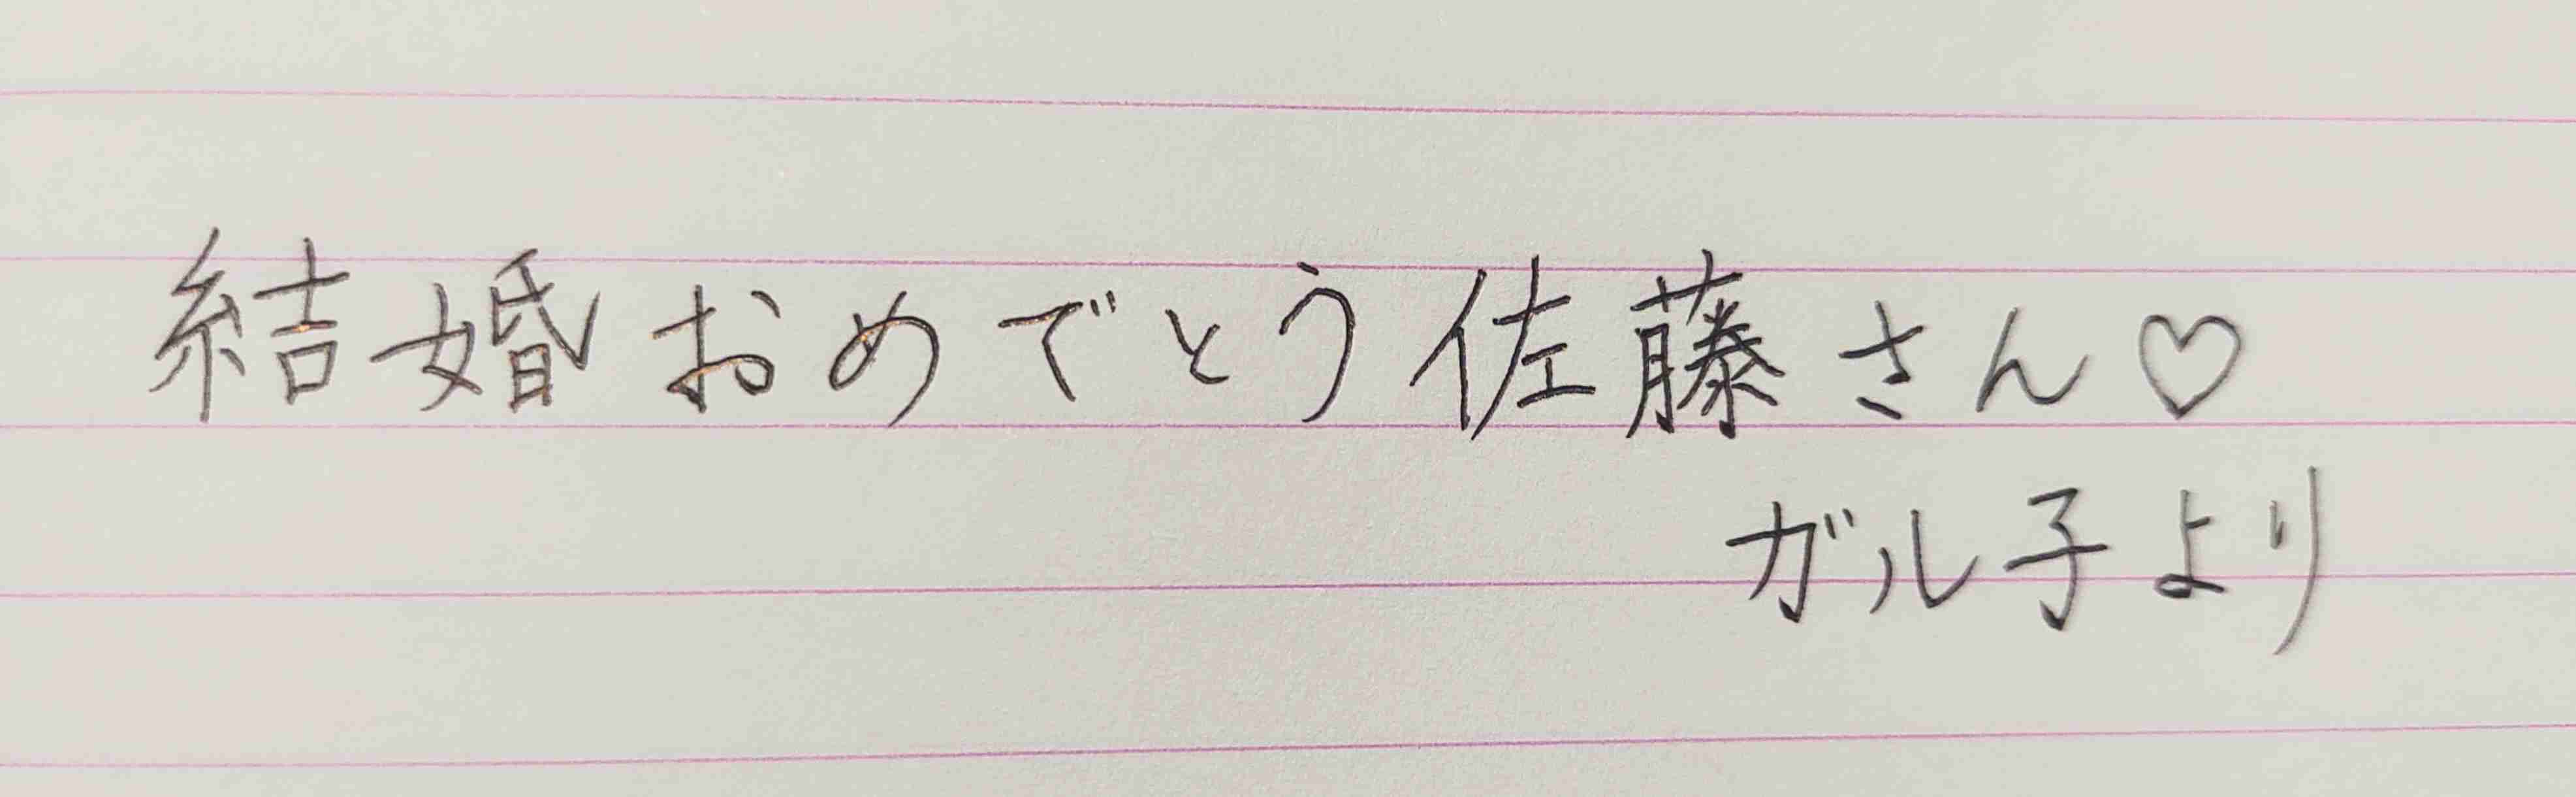 結婚おめでとう佐藤さん♡
ガル子より